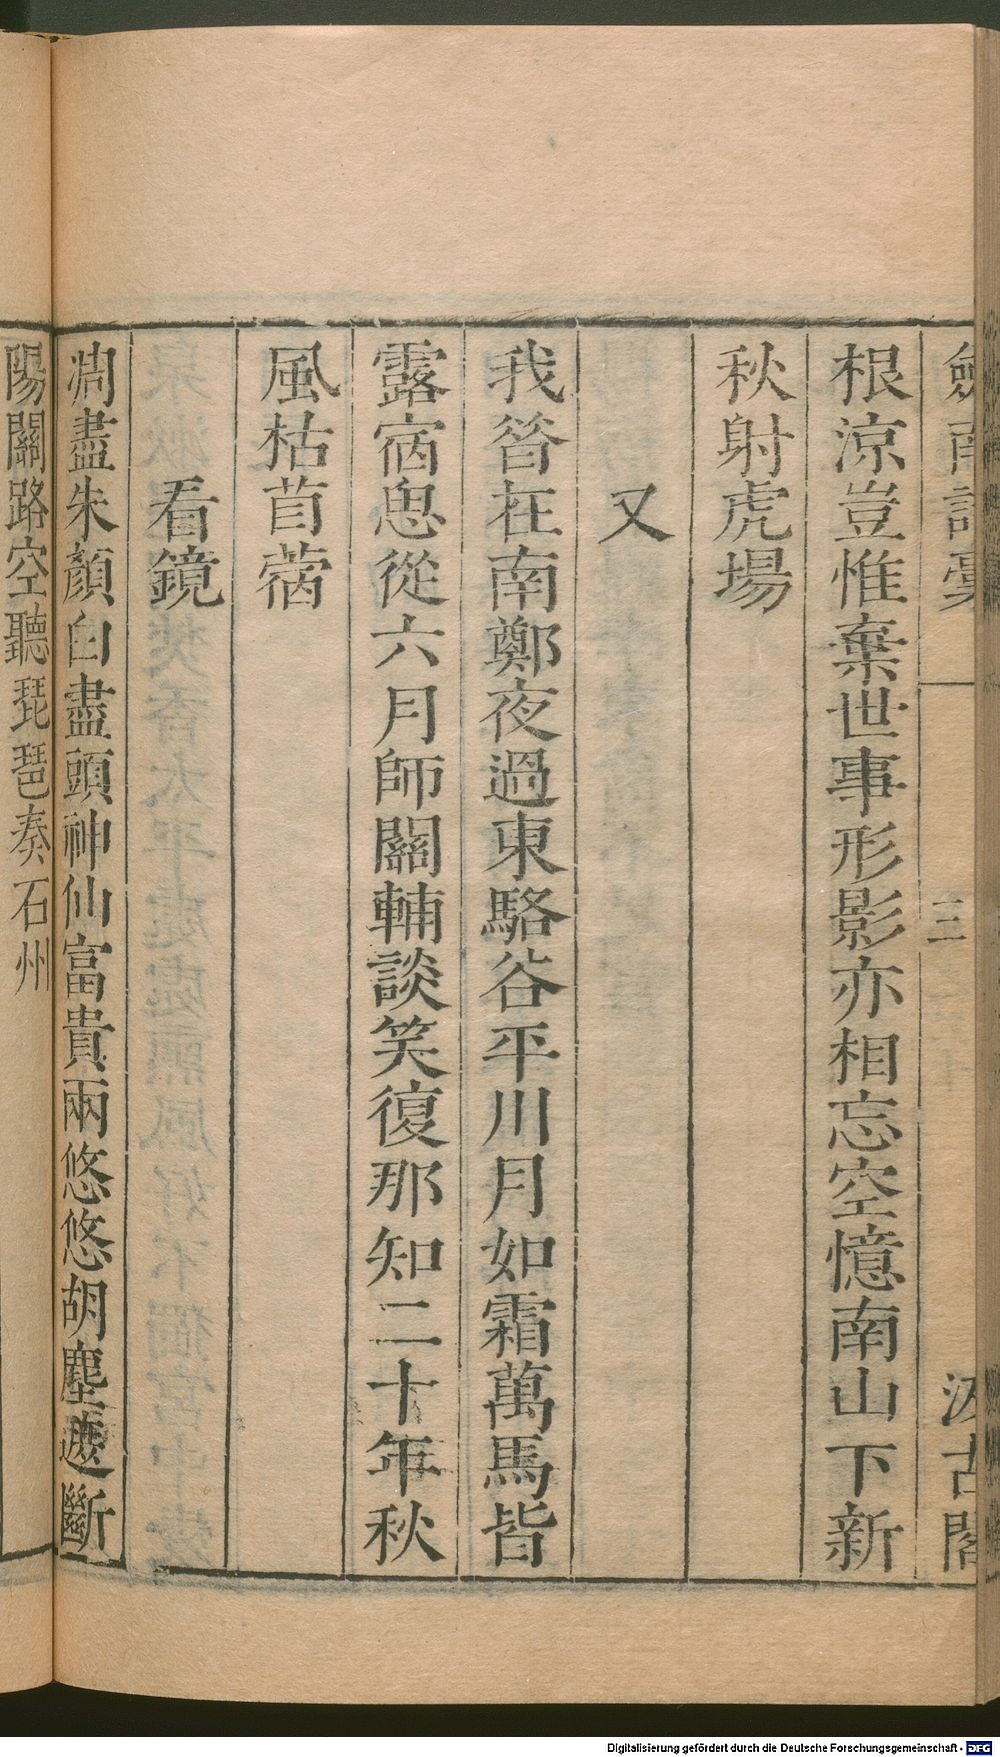 劒南詩稾
三
汲古閣
根涼豈惟棄世事形影亦相忘空憶南山下新
秋射虎場
又
我昝在南鄭夜過東駱谷平川月如霜萬馬皆
露宿思從六月師關輔談笑復那知二十年秋
風枯苜蓿
看鏡
凋盡朱顏白盡頭神仙富貴兩悠悠胡塵遮斷
陽關路空聽琵琶奏石州
Digitalisierung gefördert durch die Deutsche Forschungsgemeinschaft - DFG